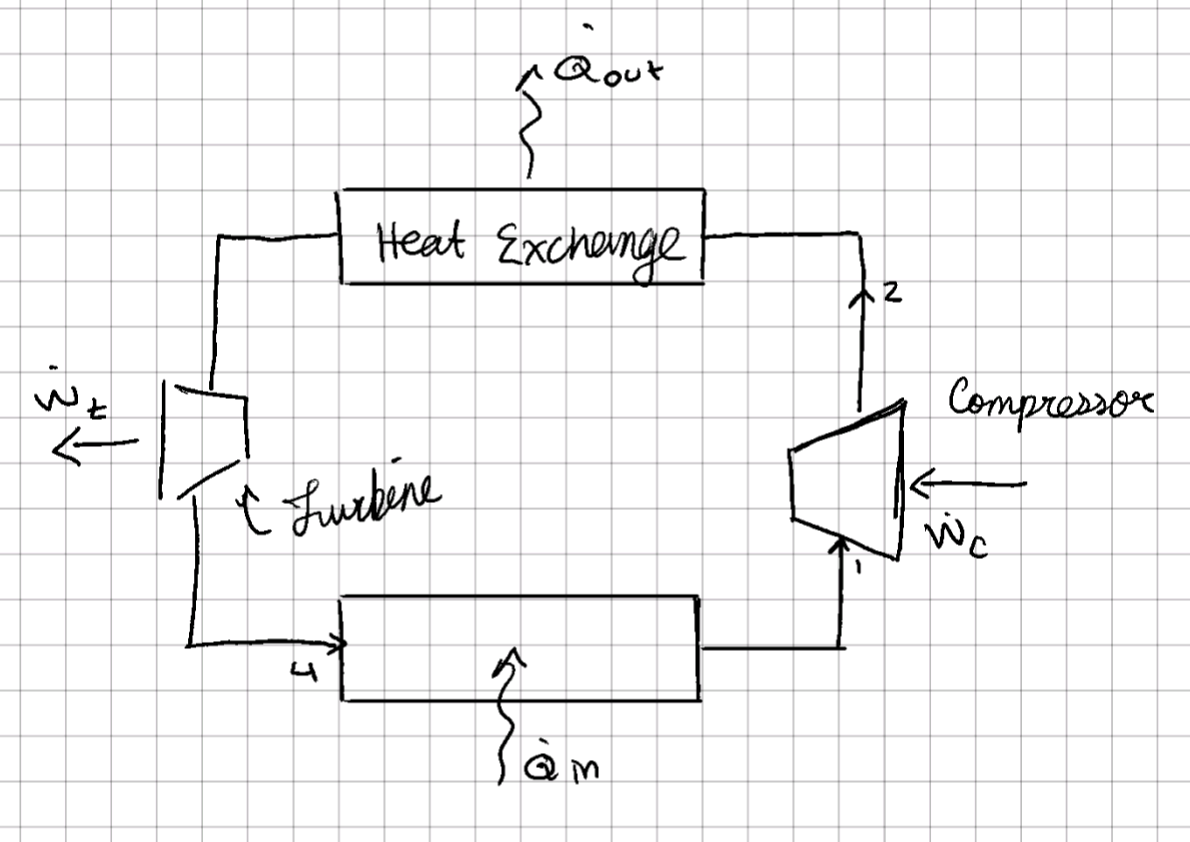 Q̇out
Heat Exchange
2
Ẇt
Compressor
Turbine
Ẇc
1
4
Q̇in